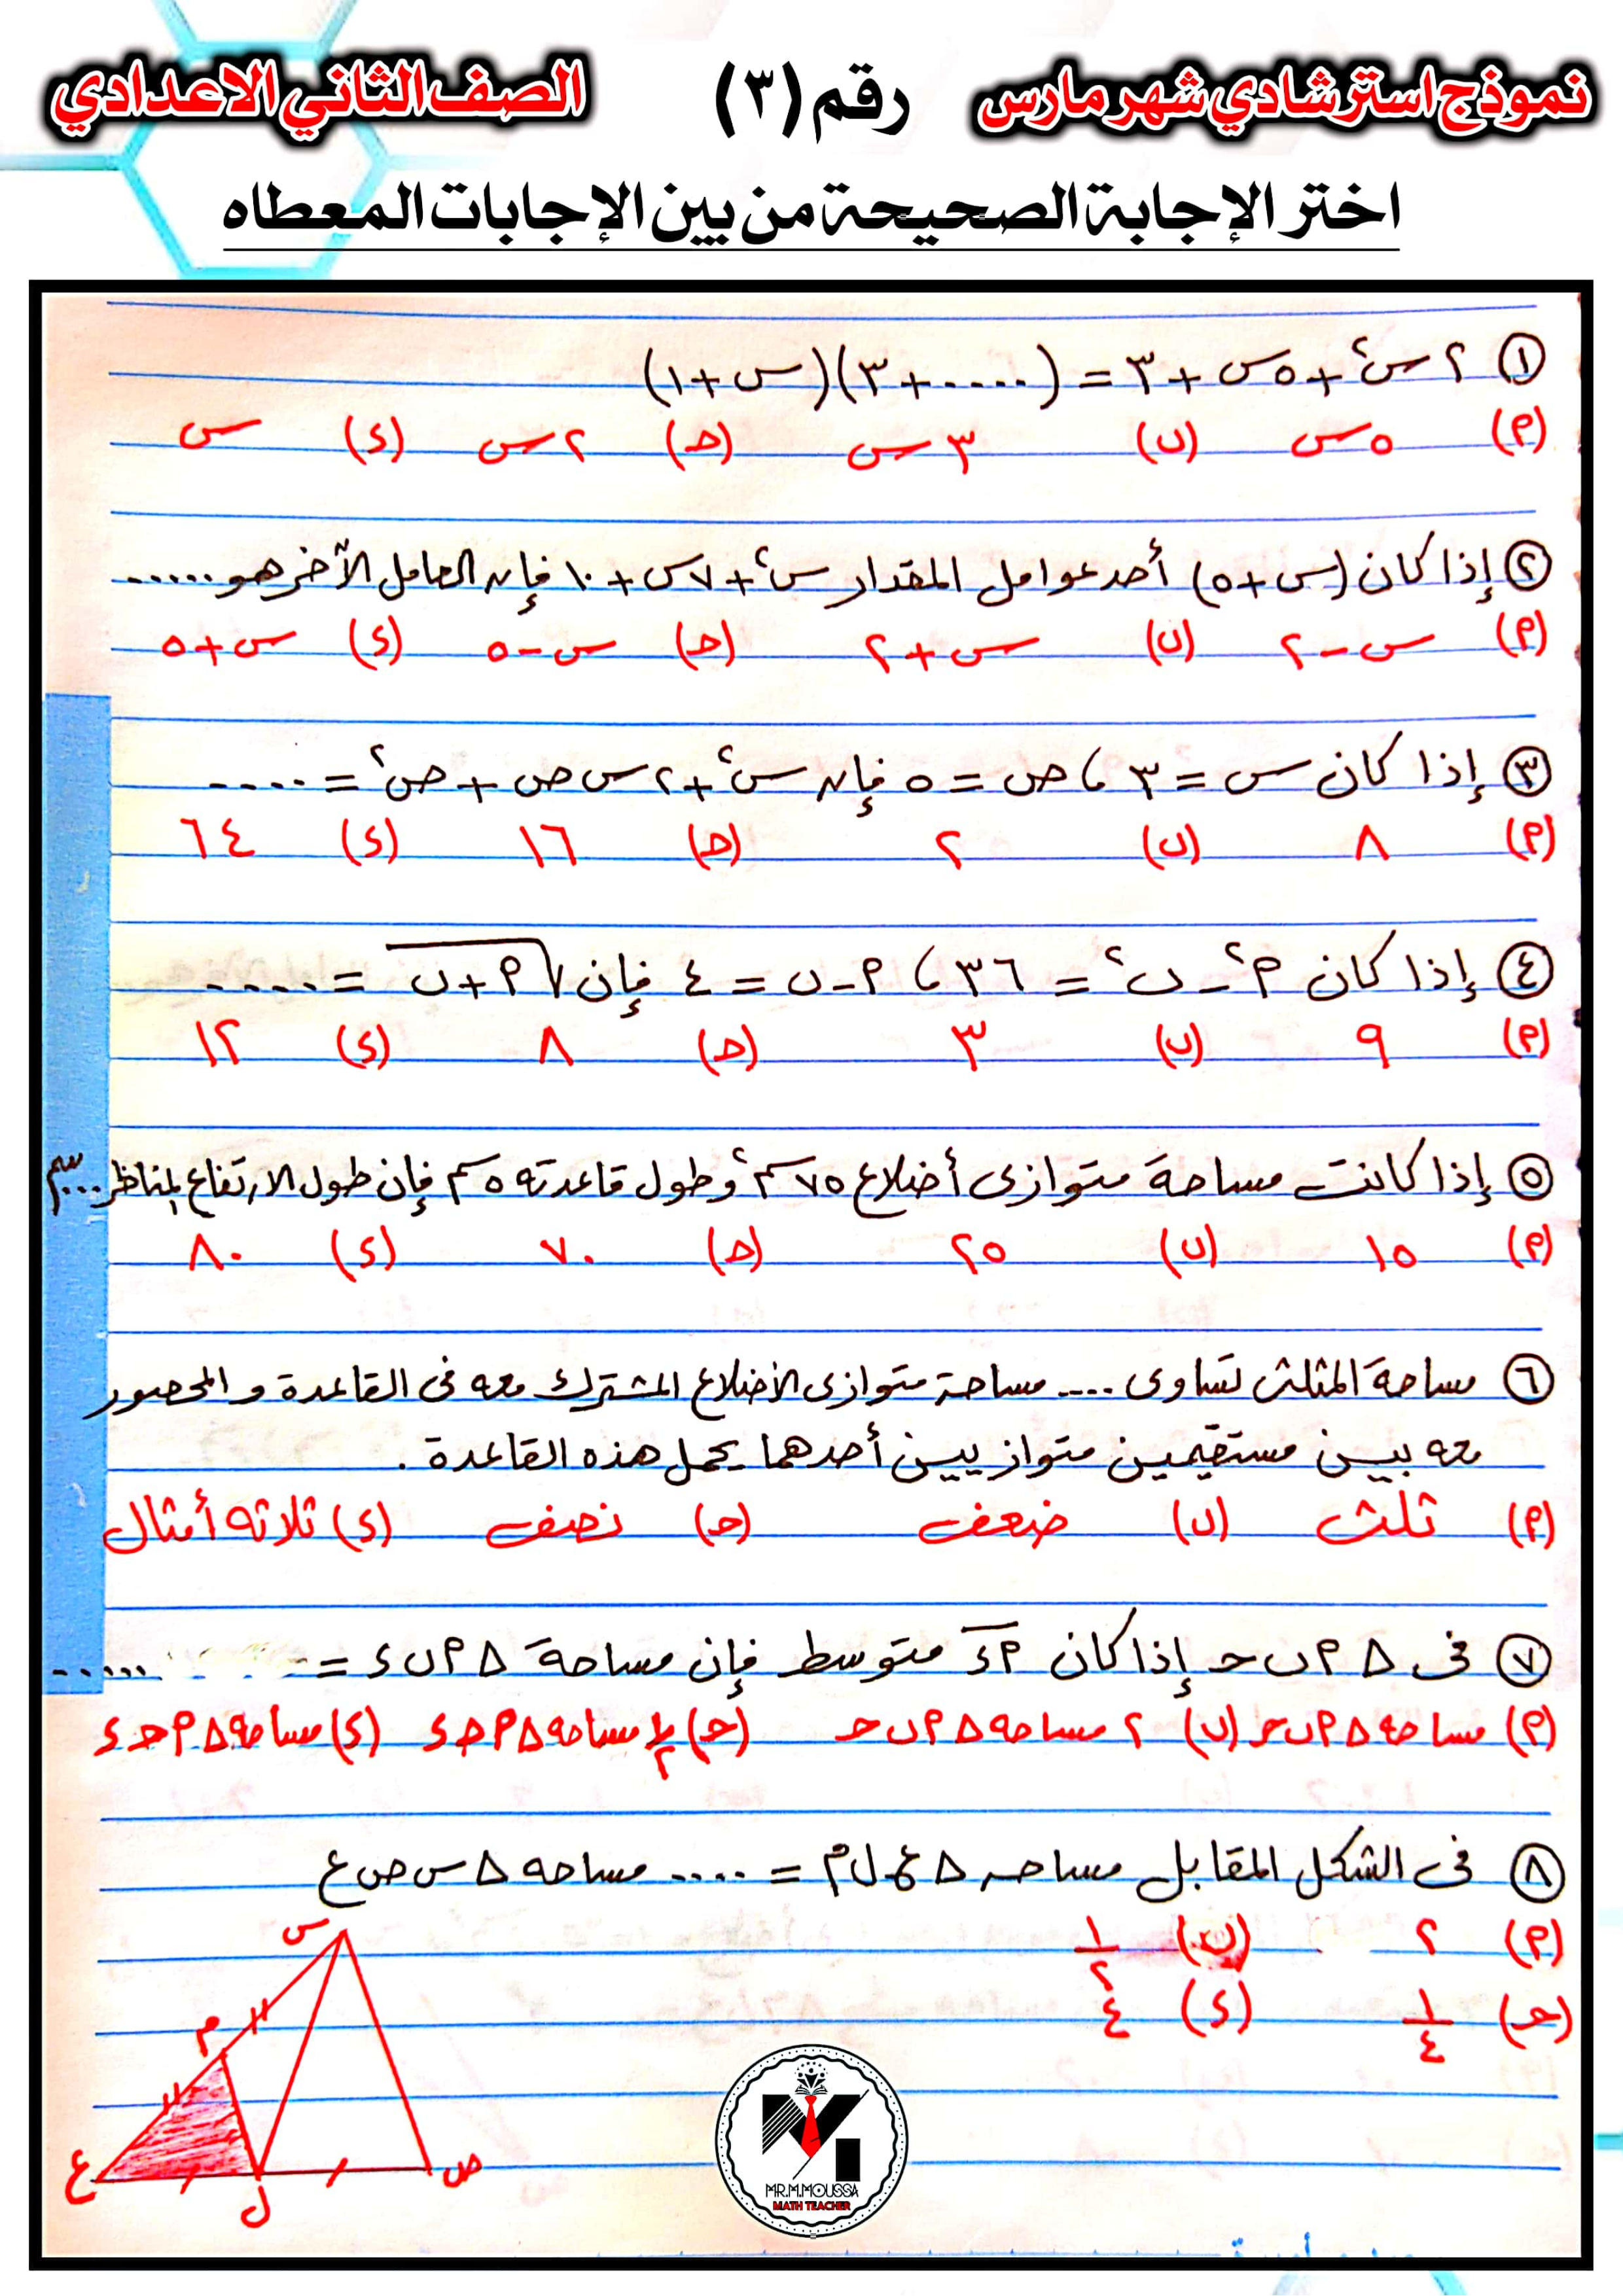 نموذج استرشادي شهر مارس رقم (٣) الصف الثاني الاعدادي
اختر الإجابة الصحيحة من بين الإجابات المعطاه
① ٢س٢ + ٥س + ٣ = (..... + ٣)(س + ١)
(م) ٥س (ں) ٣س (حـ) ٢س (د) س
② إذا كان (س + ٥) أحد عوامل المقدار س٢ + ٧س + ١٠ فإن العامل الآخر هو ......
(م) س - ٢ (ں) س + ٢ (حـ) س - ٥ (د) س + ٥
③ إذا كان س = ٣ ، ص = ٥ فإن س٢ + ٢ س ص + ص٢ = ....
(م) ٨ (ں) ٢ (حـ) ١٦ (د) ٦٤
④ إذا كان م٢ - ں٢ = ٣٦ ، م - ں = ٤ فإن √(م + ں) = ....
(م) ٩ (ں) ٣ (حـ) ٨ (د) ١٢
⑤ إذا كانت مساحة متوازى أضلاع ٧٥ سم٢ وطول قاعدته ٥ سم فإن طول الارتفاع المناظر .... سم
(م) ١٥ (ں) ٢٥ (حـ) ٧٠ (د) ٨٠
⑥ مساحة المثلث تساوى .... مساحة متوازى الأضلاع المشترك معه فى القاعدة والمحصور
معه بين مستقيمين متوازيين أحدهما يحمل هذه القاعدة .
(م) ثلث (ں) ضعف (حـ) نصف (د) ثلاثه أمثال
⑦ فى Δ م ں حـ إذا كان م د متوسط فإن مساحة Δ م ں د = ......
(م) مساحه Δ م ں حـ (ں) ٢ مساحه Δ م ں حـ (حـ) ١/٢ مساحه Δ م حـ د (د) مساحه Δ م حـ د
⑧ فى الشكل المقابل مساحه Δ ع ل م = .... مساحه Δ س ص ع
(م) ٢ (ں) ١/٢
(حـ) ١/٤ (د) ٤
س
م
ع
ل
ص
MR.M.MOUSSA
MATH TEACHER